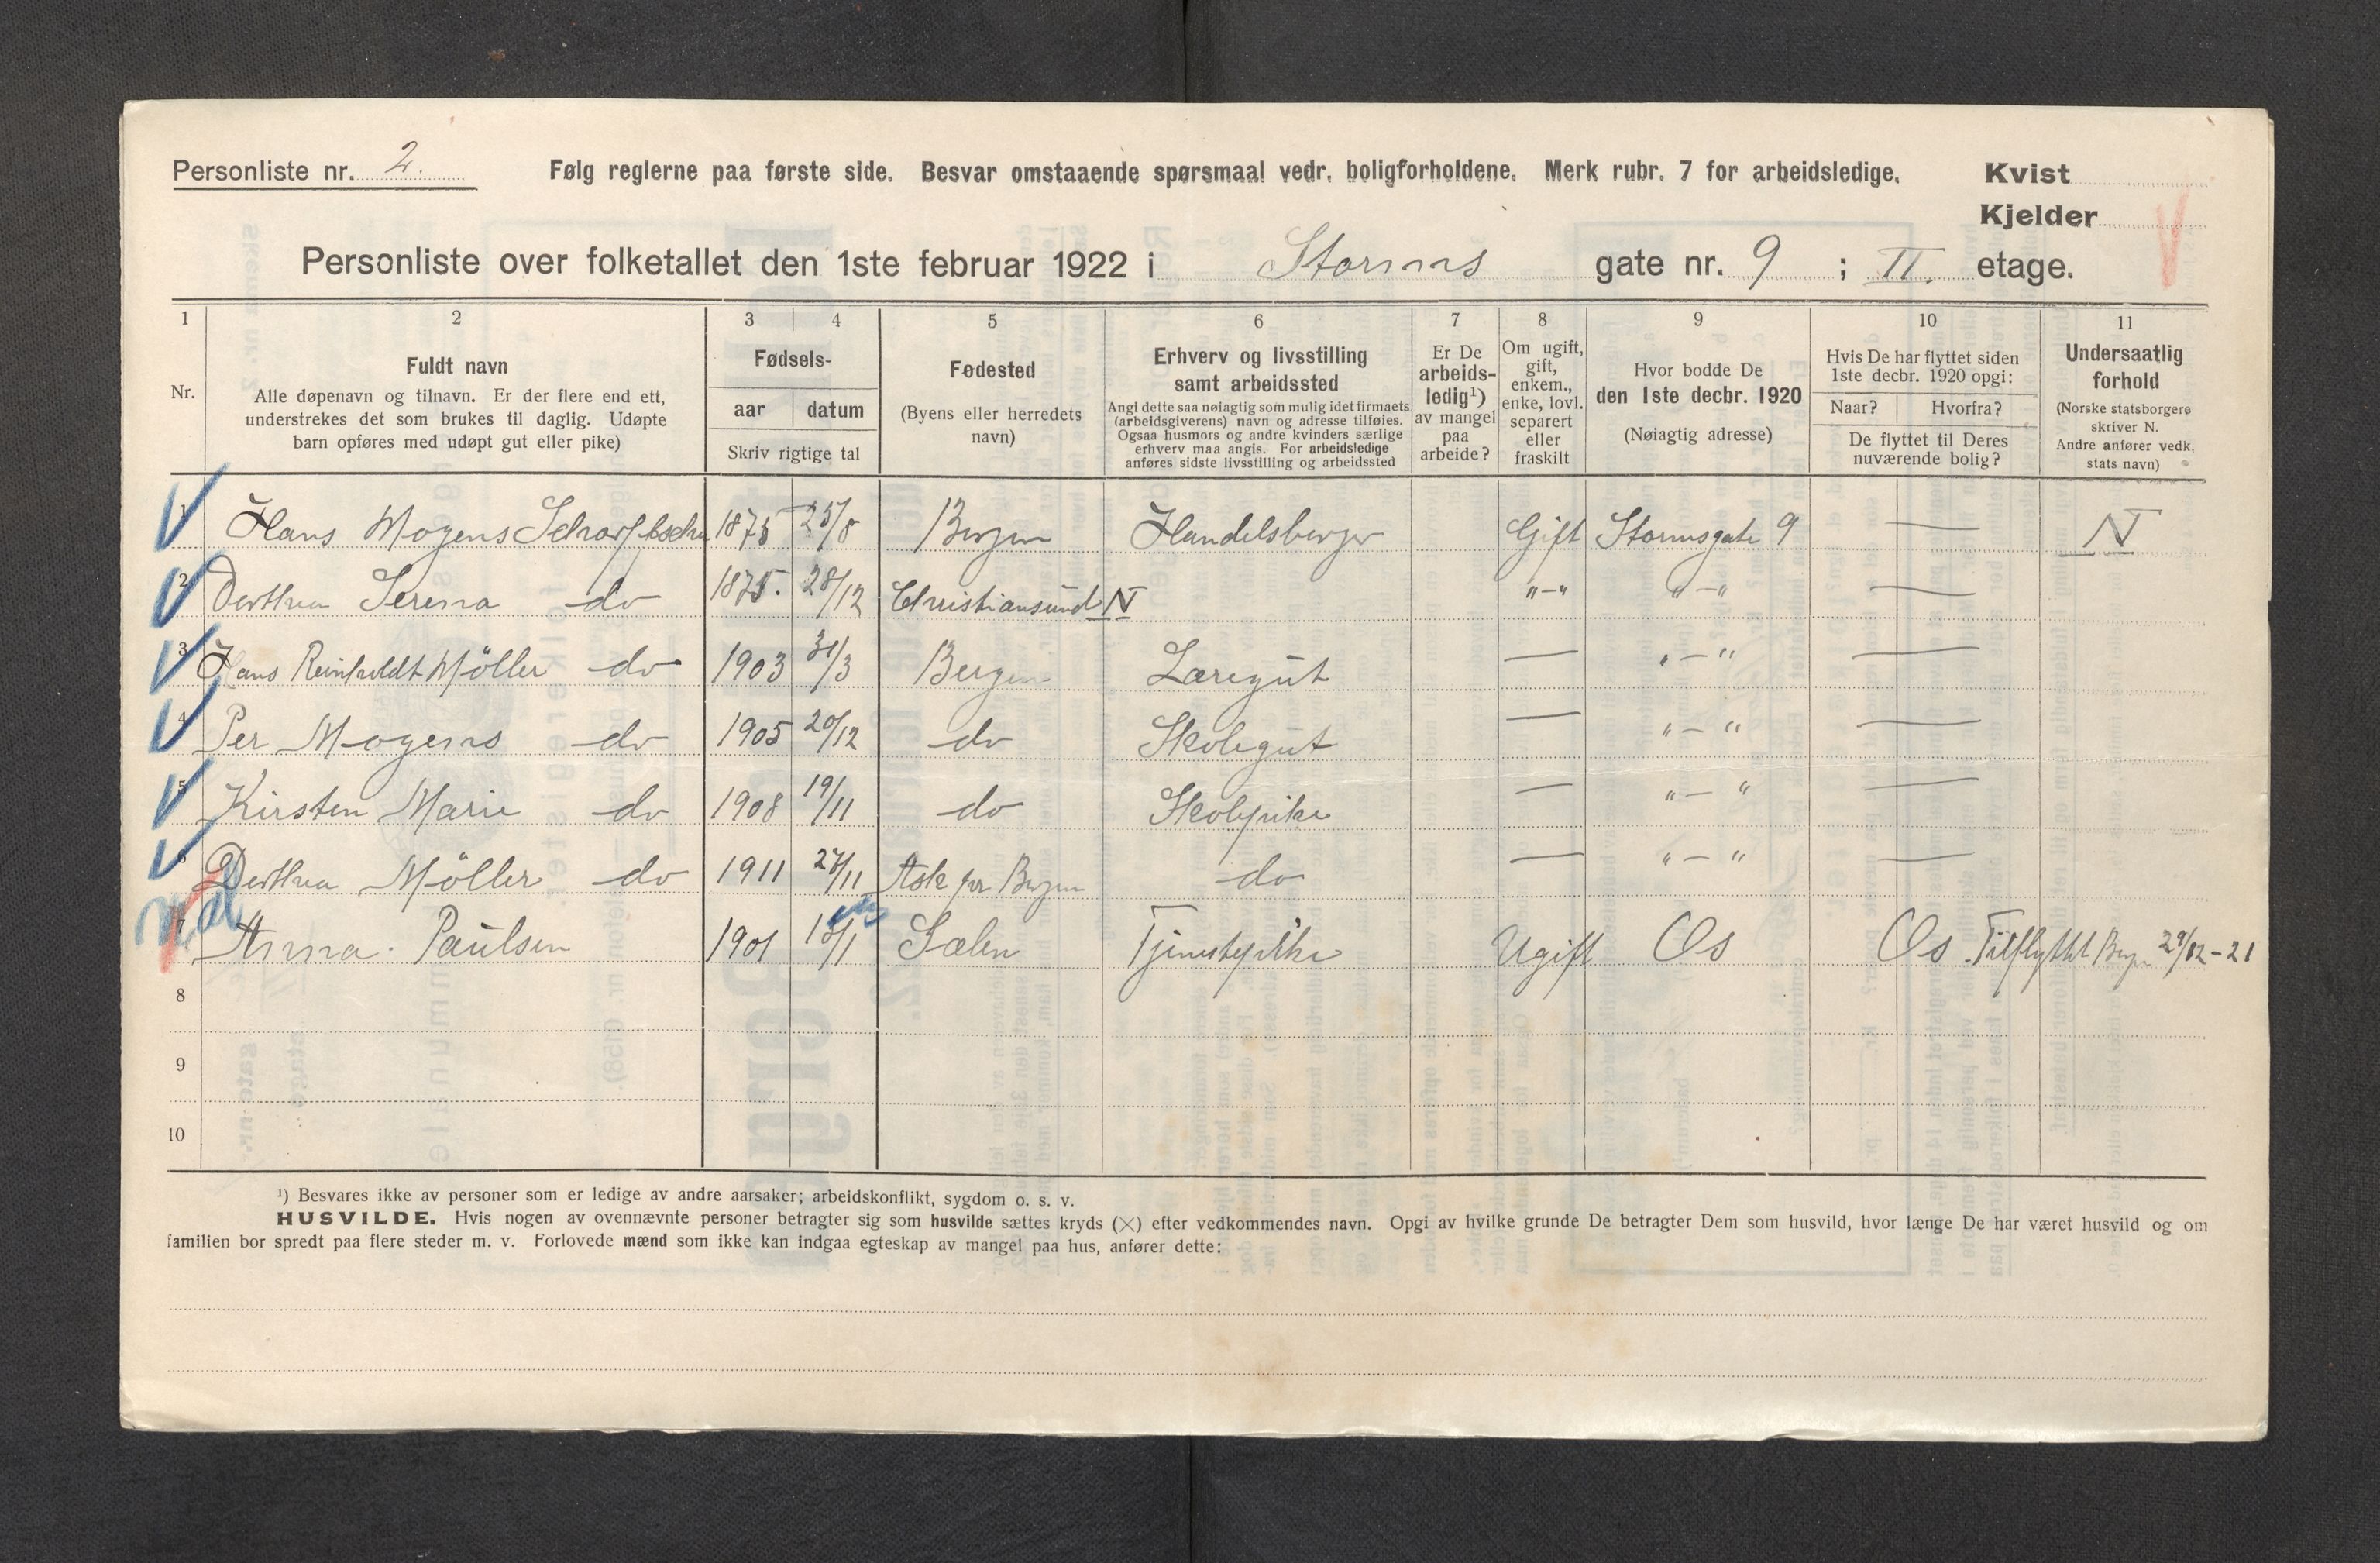 Personliste nr. 2. Følg reglerne paa første side. Besvar omstaaende spørsmaal vedr. boligforholdene. Merk rubr. 7 for arbeidsledige. Kvist
Kjelder
Personliste over folketallet den 1ste februar 1922 i Storms gate nr. 9 ; II. etage.
1 2 3 4 5 6 7 8 9 10 11
Nr.
Fuldt navn
Alle døpenavn og tilnavn. Er der flere end ett,
understrekes det som brukes til daglig. Udøpte
barn opføres med udøpt gut eller pike)
Fødsels-
aar datum
Skriv rigtige tal
Fødested
(Byens eller herredets
navn)
Erhverv og livsstilling
samt arbeidssted
Angi dette saa nøiagtig som mulig idet firmaets
(arbeidsgiverens) navn og adresse tilføies.
Ogsaa husmors og andre kvinders særlige
erhverv maa angis. For arbeidsledige
anføres sidste livsstilling og arbeidssted
Er De
arbeids-
ledig¹)
av mangel
paa
arbeide?
Om ugift,
gift,
enkem.,
enke, lovl.
separert
eller
fraskilt
Hvor bodde De
den 1ste decbr. 1920
(Nøiagtig adresse)
Hvis De har flyttet siden
1ste decbr. 1920 opgi:
Naar? Hvorfra?
De flyttet til Deres
nuværende bolig?
Undersaatlig
forhold
(Norske statsborgere
skriver N.
Andre anfører vedk.
stats navn)
1 Hans Mogens 1875 25/8 Bergen Handelsborger Gift Stormsgate 9 — N
2 Dorthea Serena do 1875. 28/12 Christiansund N "-" "-" —
3 Hans Reinholdt Möller do 1903 31/3 Bergen Læregut — "-" —
4 Per Mogens do 1905 20/12 do Skolegut — "-" —
5 Kirsten Marie do 1908 19/11 do Skolepike — "-" —
6 Dorthea Möller do 1911 27/11 Ask pr Bergen do — "-" —
7 Anna Paulsen 1901 Sælen Tjenestepike Ugift Os Os Tilflyttet Bergen 29/12-21
8
9
10
¹) Besvares ikke av personer som er ledige av andre aarsaker; arbeidskonflikt, sygdom o. s. v.
HUSVILDE. Hvis nogen av ovennævnte personer betragter sig som husvilde sættes kryds (×) efter vedkommendes navn. Opgi av hvilke grunde De betragter Dem som husvild, hvor længe De har været husvild og om
familien bor spredt paa flere steder m. v. Forlovede mænd som ikke kan indgaa egteskap av mangel paa hus, anfører dette: